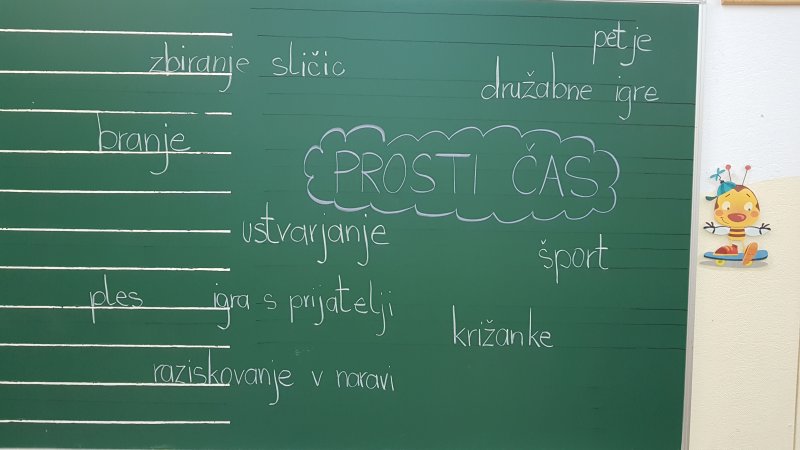 petje
zbiranje sličic
družabne igre
branje
PROSTI ČAS
ustvarjanje
šport
ples
igra s prijatelji
križanke
raziskovanje v naravi